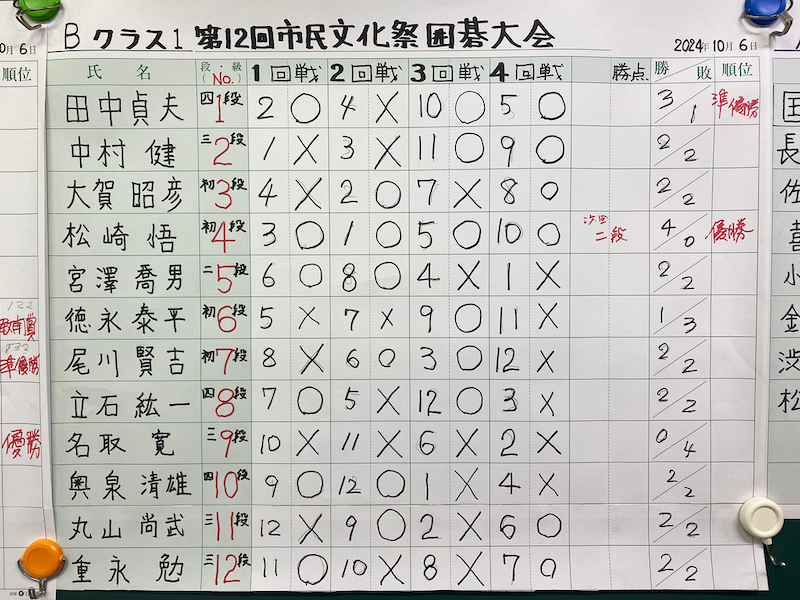 Bクラス1 第12回市民文化祭囲碁大会
2024年10月6日
氏 名 段・級 (No.) 1回戦 2回戦 3回戦 4回戦 勝点 勝/敗 順位
田中貞夫 四1段 2 ○ 4 × 10 ○ 5 ○ 3/1 準優勝
中村 健 三2段 1 × 3 × 11 ○ 9 ○ 2/2
大賀 昭彦 初3段 4 × 2 ○ 7 × 8 ○ 2/2
松崎 悟 初4段 3 ○ 1 ○ 5 ○ 10 ○ 二段 4/0 優勝
宮澤喬男 二5段 6 ○ 8 ○ 4 × 1 × 2/2
徳永泰平 初6段 5 × 7 × 9 ○ 11 × 1/3
尾川賢吉 初7段 8 × 6 ○ 3 ○ 12 × 2/2
立石紘一 四8段 7 ○ 5 × 12 ○ 3 × 2/2
名取 寛 三9段 10 × 11 × 6 × 2 × 0/4
奥泉清雄 四10段 9 ○ 12 ○ 1 × 4 × 2/2
丸山尚武 三11段 12 × 9 ○ 2 × 6 ○ 2/2
重永 勉 三12段 11 ○ 10 × 8 × 7 ○ 2/2
0月6日
順位
準優勝
優勝
長
佐
喜
小
金
渋
松